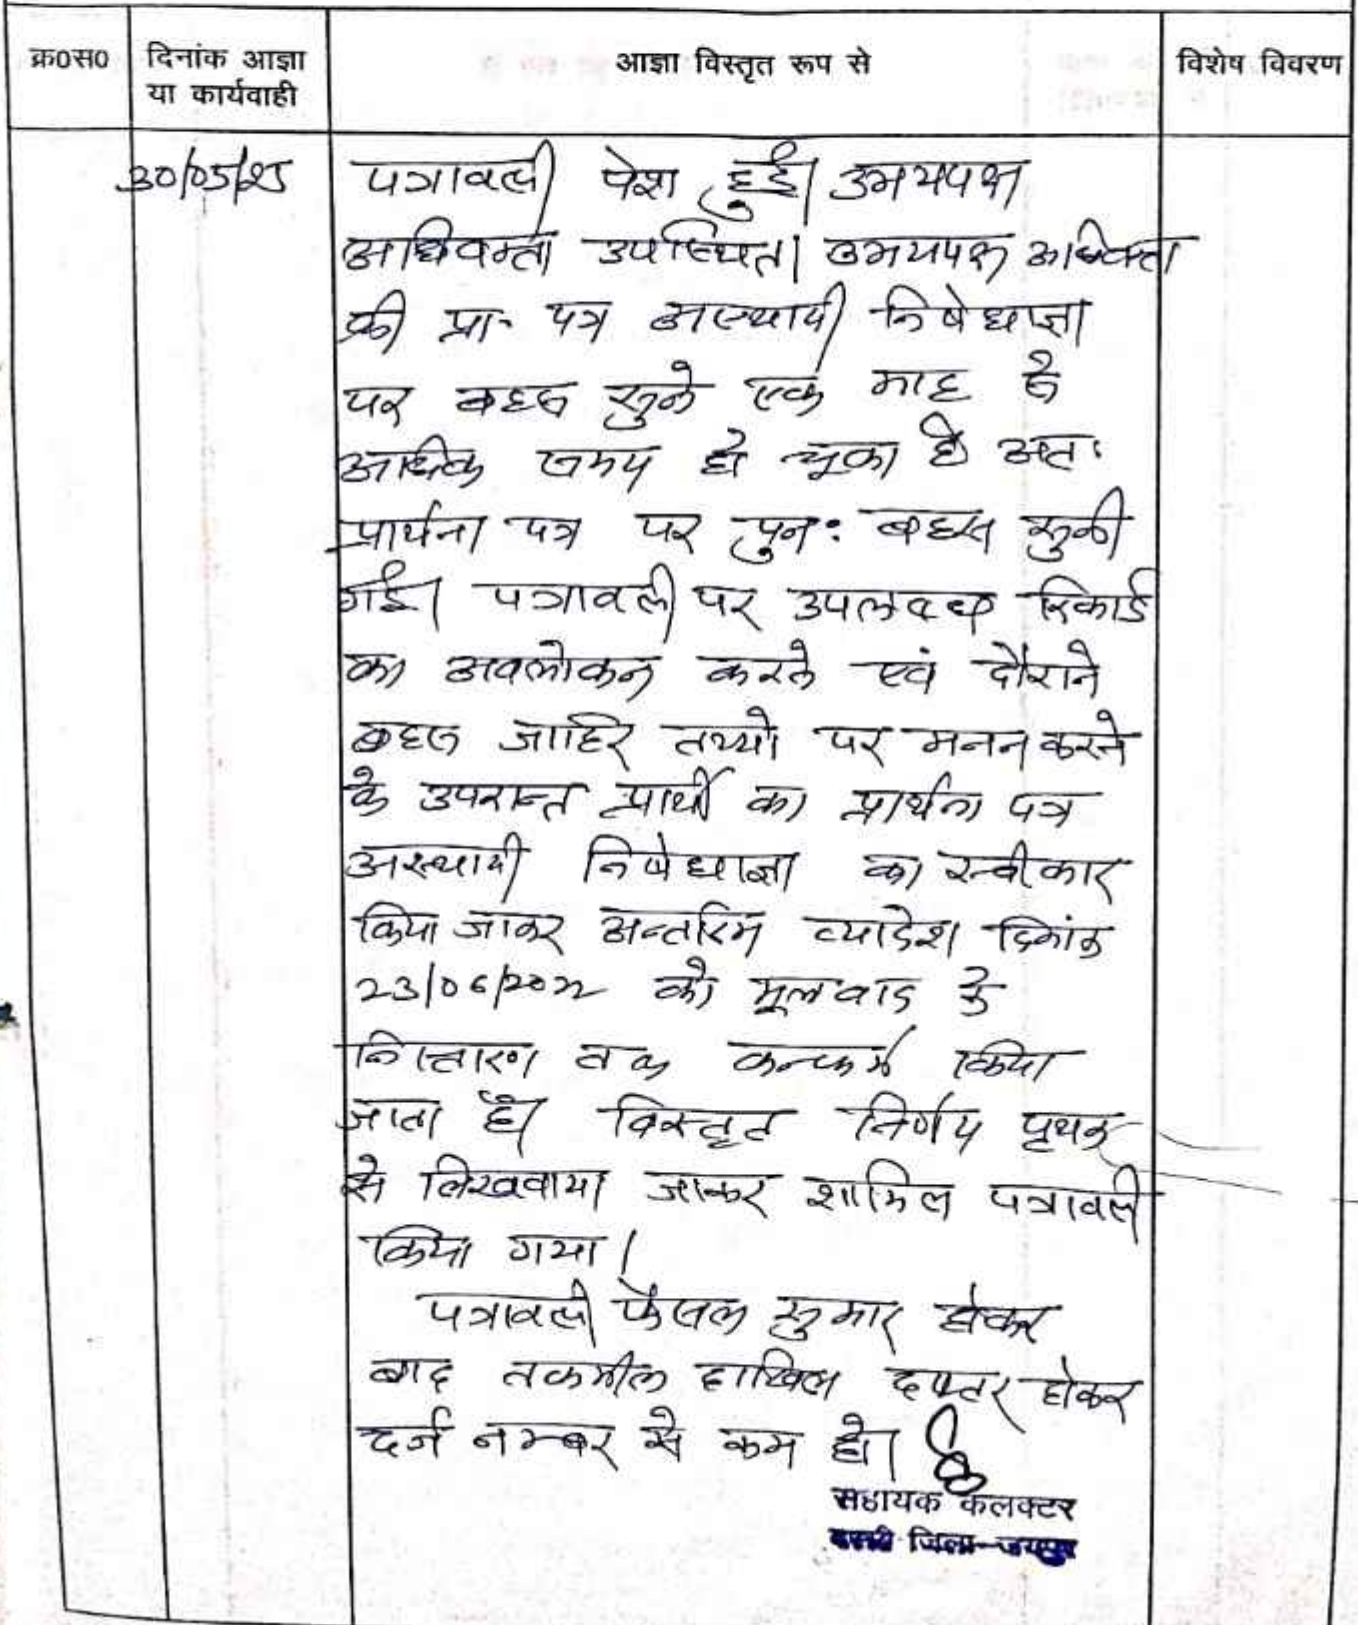 क्र0स0 दिनांक आज्ञा या कार्यवाही आज्ञा विस्तृत रूप से विशेष विवरण
30/05/25 पत्रावली पेश हुई। उभयपक्ष
अधिवक्ता उपस्थित। उभयपक्ष अधिवक्ता
की प्रा- पत्र अस्थायी निषेधाज्ञा
पर बहस सुने एक माह से
अधिक समय हो चूका है अतः
प्रार्थना पत्र पर पुनः बहस सुनी
गई। पत्रावली पर उपलब्ध रिकार्ड
का अवलोकन करने एवं दौराने
बहस जाहिर तथ्यो पर मनन करने
के उपरान्त प्रार्थी का प्रार्थना पत्र
अस्थायी निषेधाज्ञा का स्वीकार
किया जाकर अन्तरिम व्यादेश दिनांक
23/06/2022 को मूलवाद के
निस्तारण तक कन्फर्म किया
जाता है। विस्तृत निर्णय पृथक
से लिखवाया जाकर शामिल पत्रावली
किया गया।
पत्रावली फैसल सुमार होकर
बाद तकमील दाखिल दफ्तर होकर
दर्ज नम्बर से कम हो।
सहायक कलक्टर
जिला-जयपुर